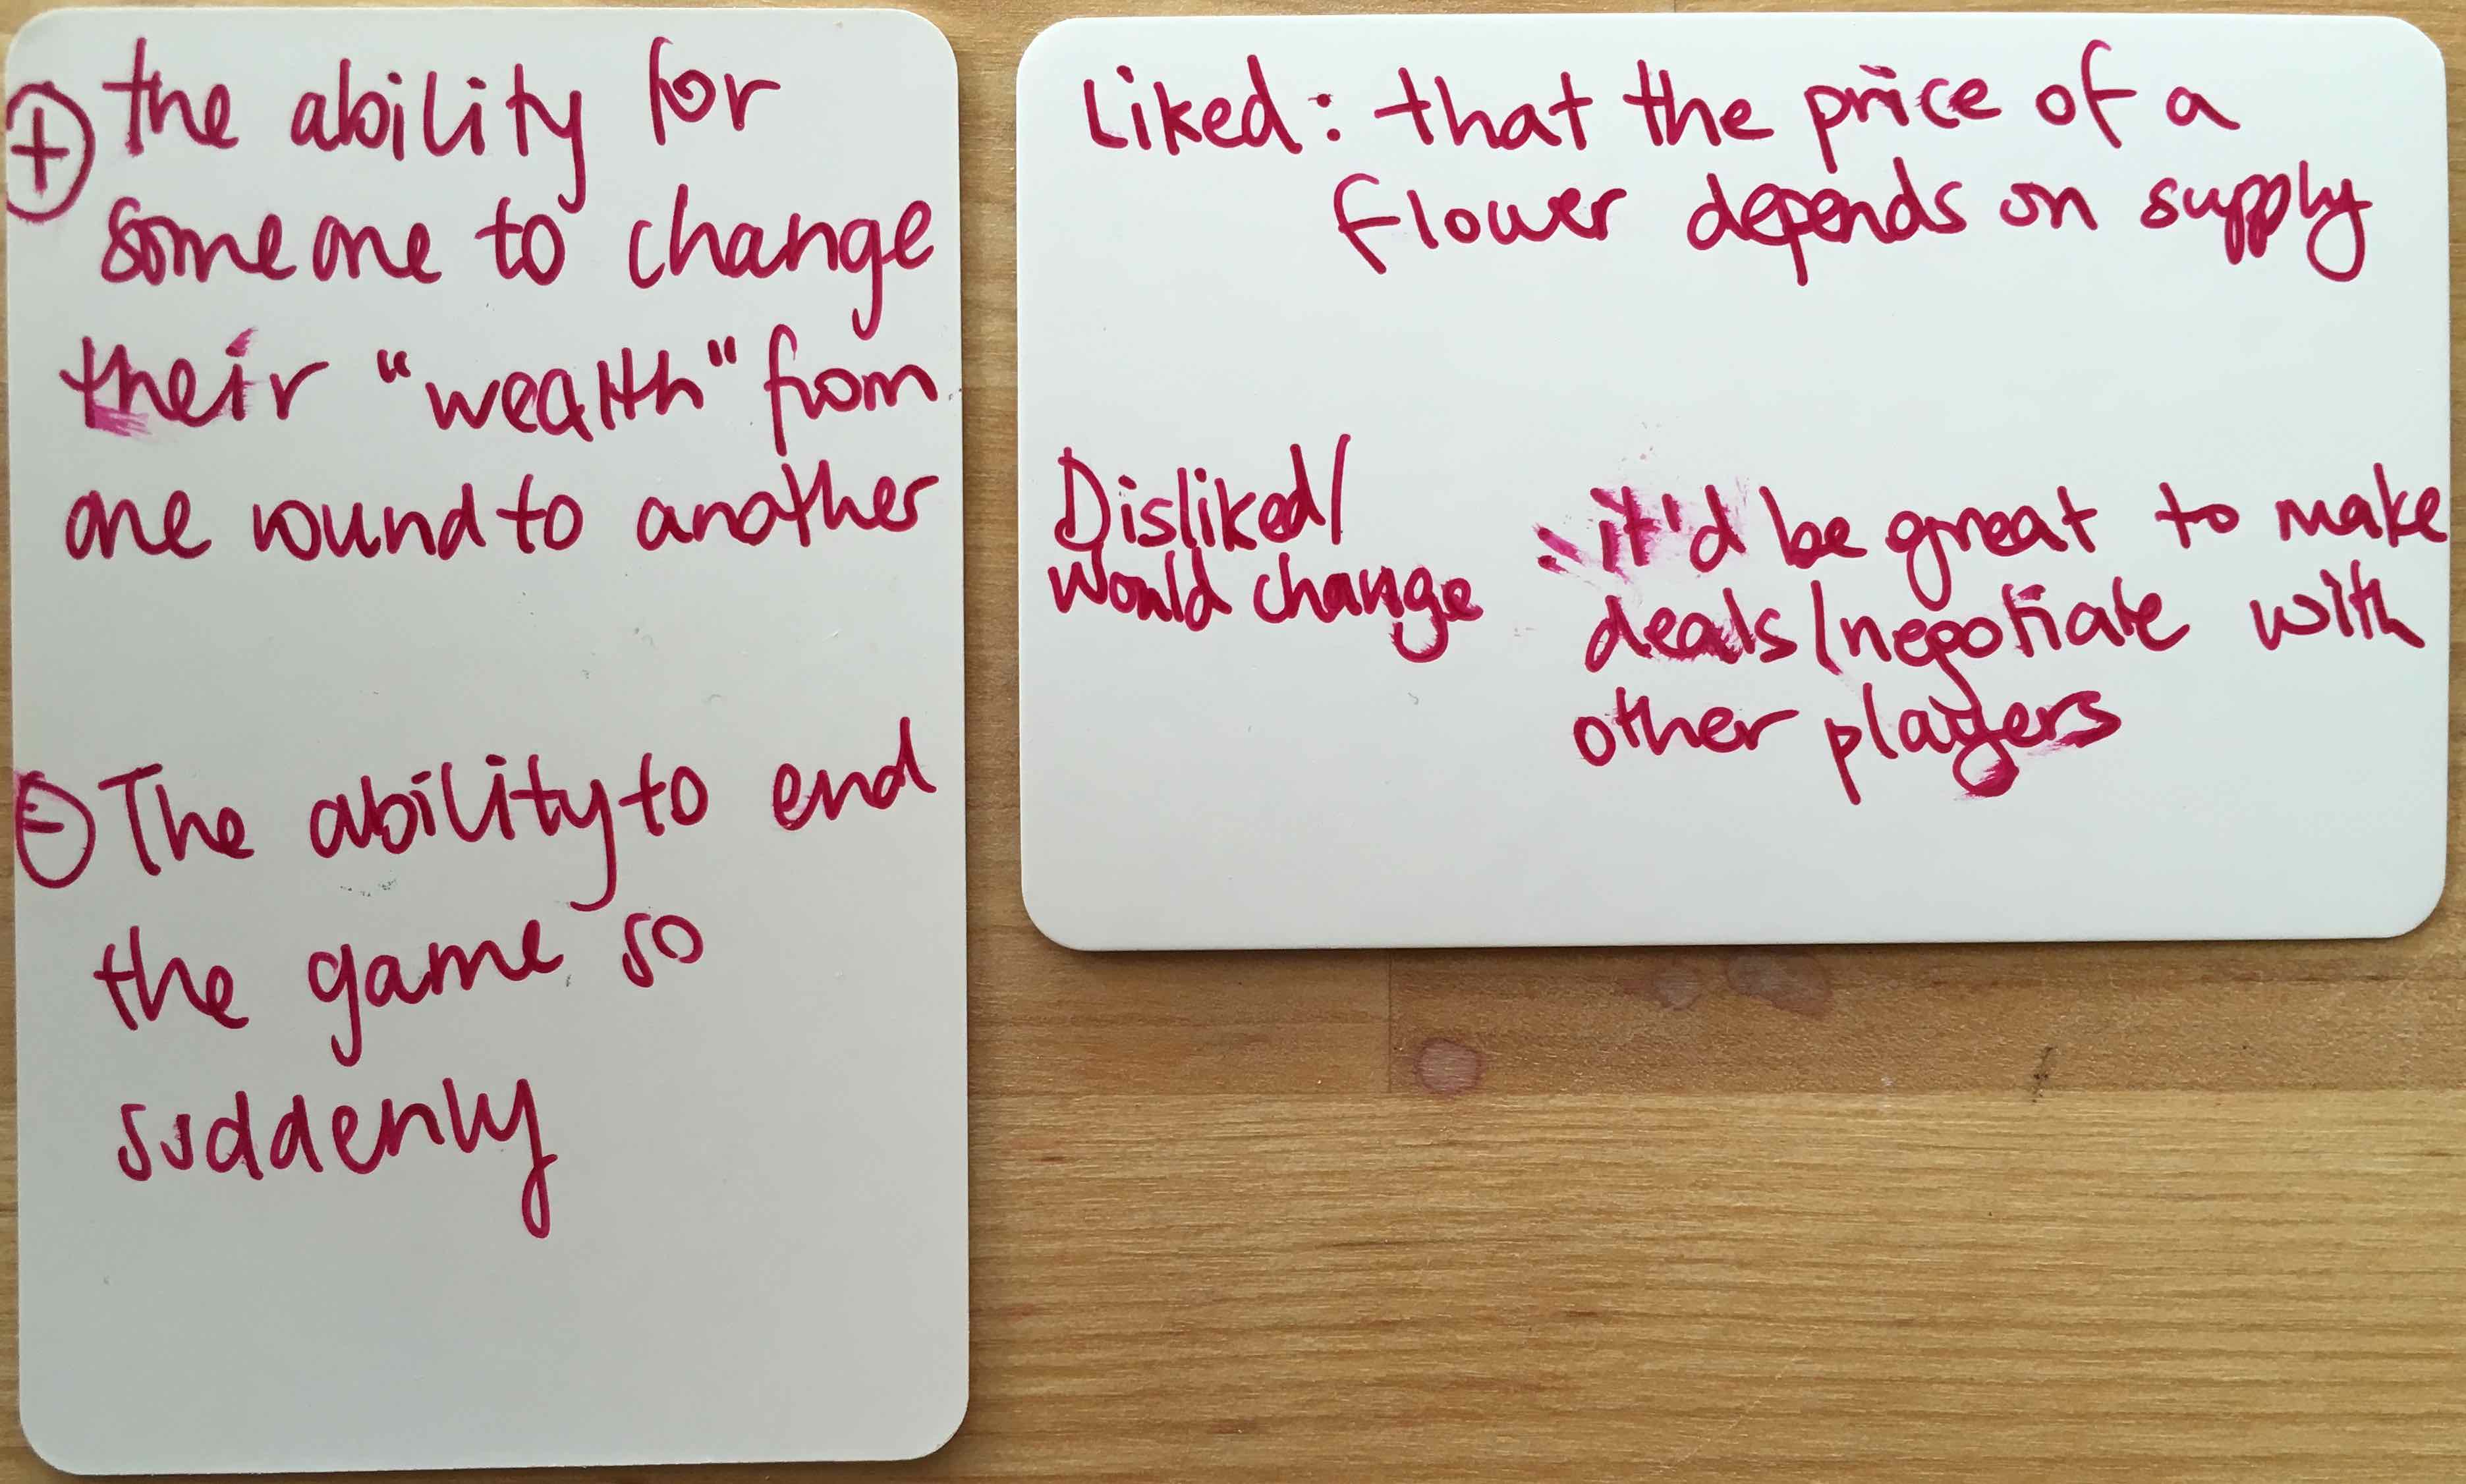 ⊕ the ability for
someone to change
their "wealth" from
one round to another
⊖ The ability to end
the game so
suddenly
Liked: that the price of a
flower depends on supply
Disliked/
would change
: it'd be great to make
deals/negotiate with
other players